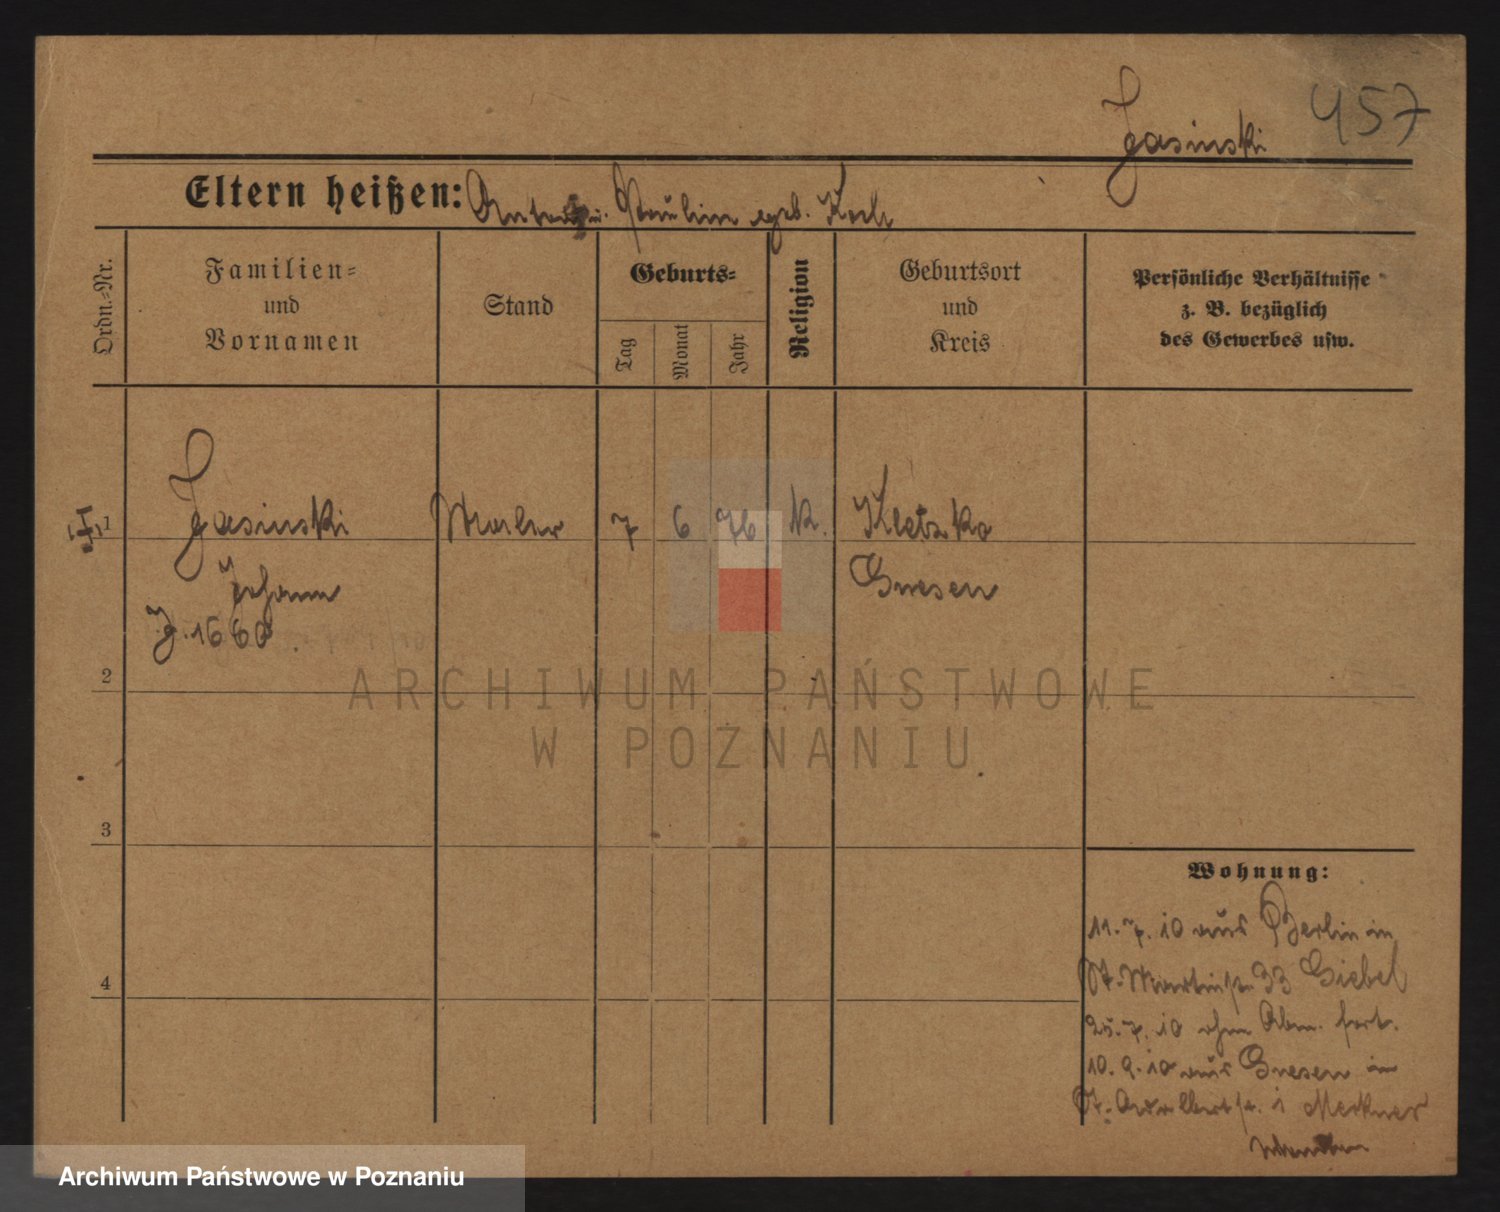 457
Jasinski
Eltern heißen: Anton u. Paulin geb. Koch
Ordn.=Nr.
Familien=
und
Vornamen
Stand
Geburts=
Tag
Monat
Jahr
Religion
Geburtsort
und
Kreis
Persönliche Verhältnisse
z. B. bezüglich
des Gewerbes usw.
1 Jasinski Maler 7 6 76 K. Kletzko
Johann Gnesen
J. 1660
2
3
4
Wohnung:
11. 7. 10 aus Berlin in
St. Martinstr. 33 Giebel
25. 7. 10 ohne Abm. fort.
10. 9. 10 aus Gnesen in
St. Adalbertstr. 1
ARCHIWUM PAŃSTWOWE
W POZNANIU
Archiwum Państwowe w Poznaniu